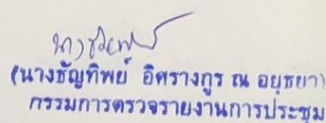 (นางธัญทิพย์ อิศรางกูร ณ อยุธยา)
กรรมการตรวจรายงานการประชุม